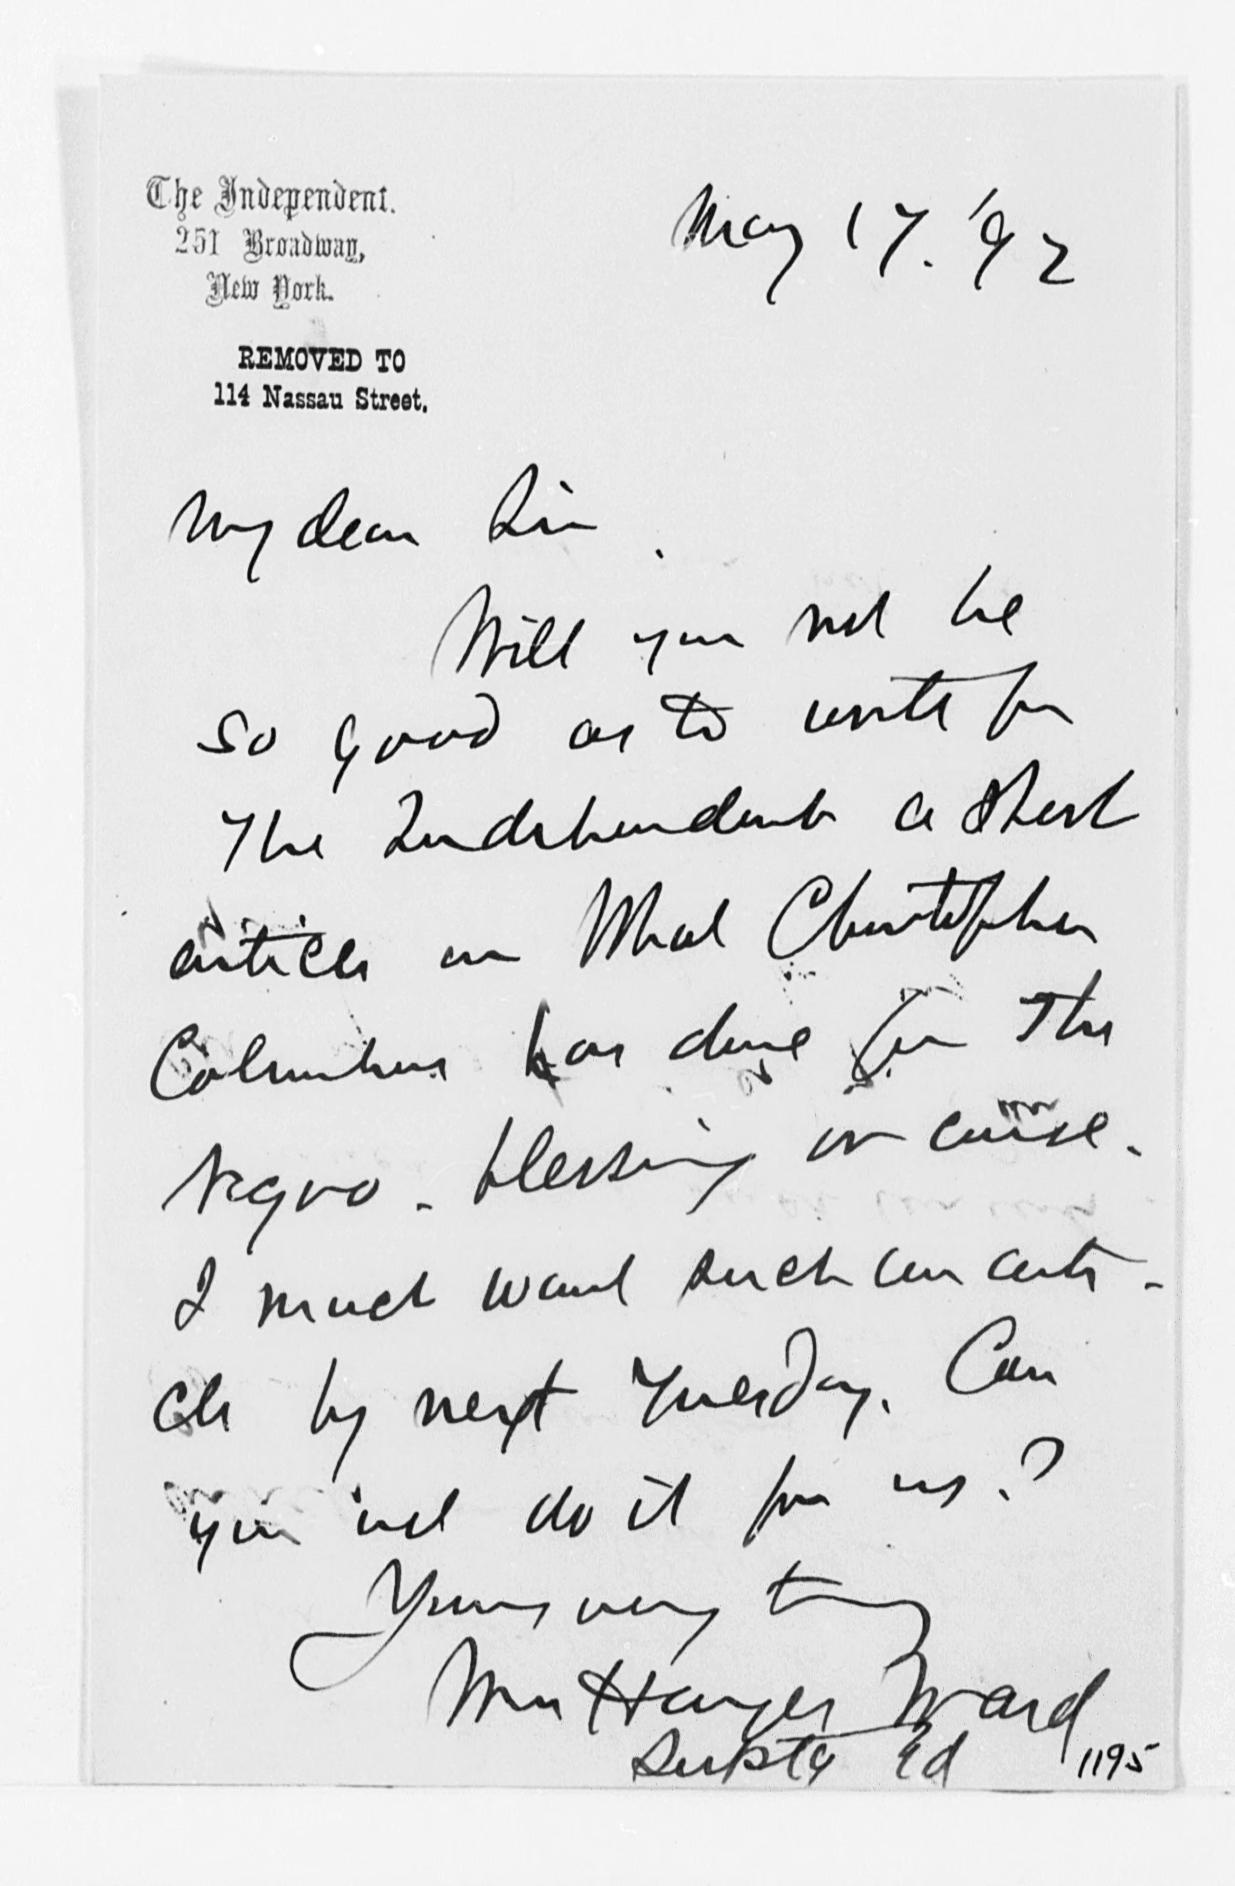 The Independent.
251 Broadway,
New York.
REMOVED TO
114 Nassau Street.
May 17. '92
My dear Sir.
Will you not be
so good as to write for
The Independent a short
article on What Christopher
Columbus has done for the
Negro - blessing or curse.
I much want such an arti-
cle by next Tuesday. Can
you not do it for us?
Yours very truly
Wm Hayes Ward
Ed
1195